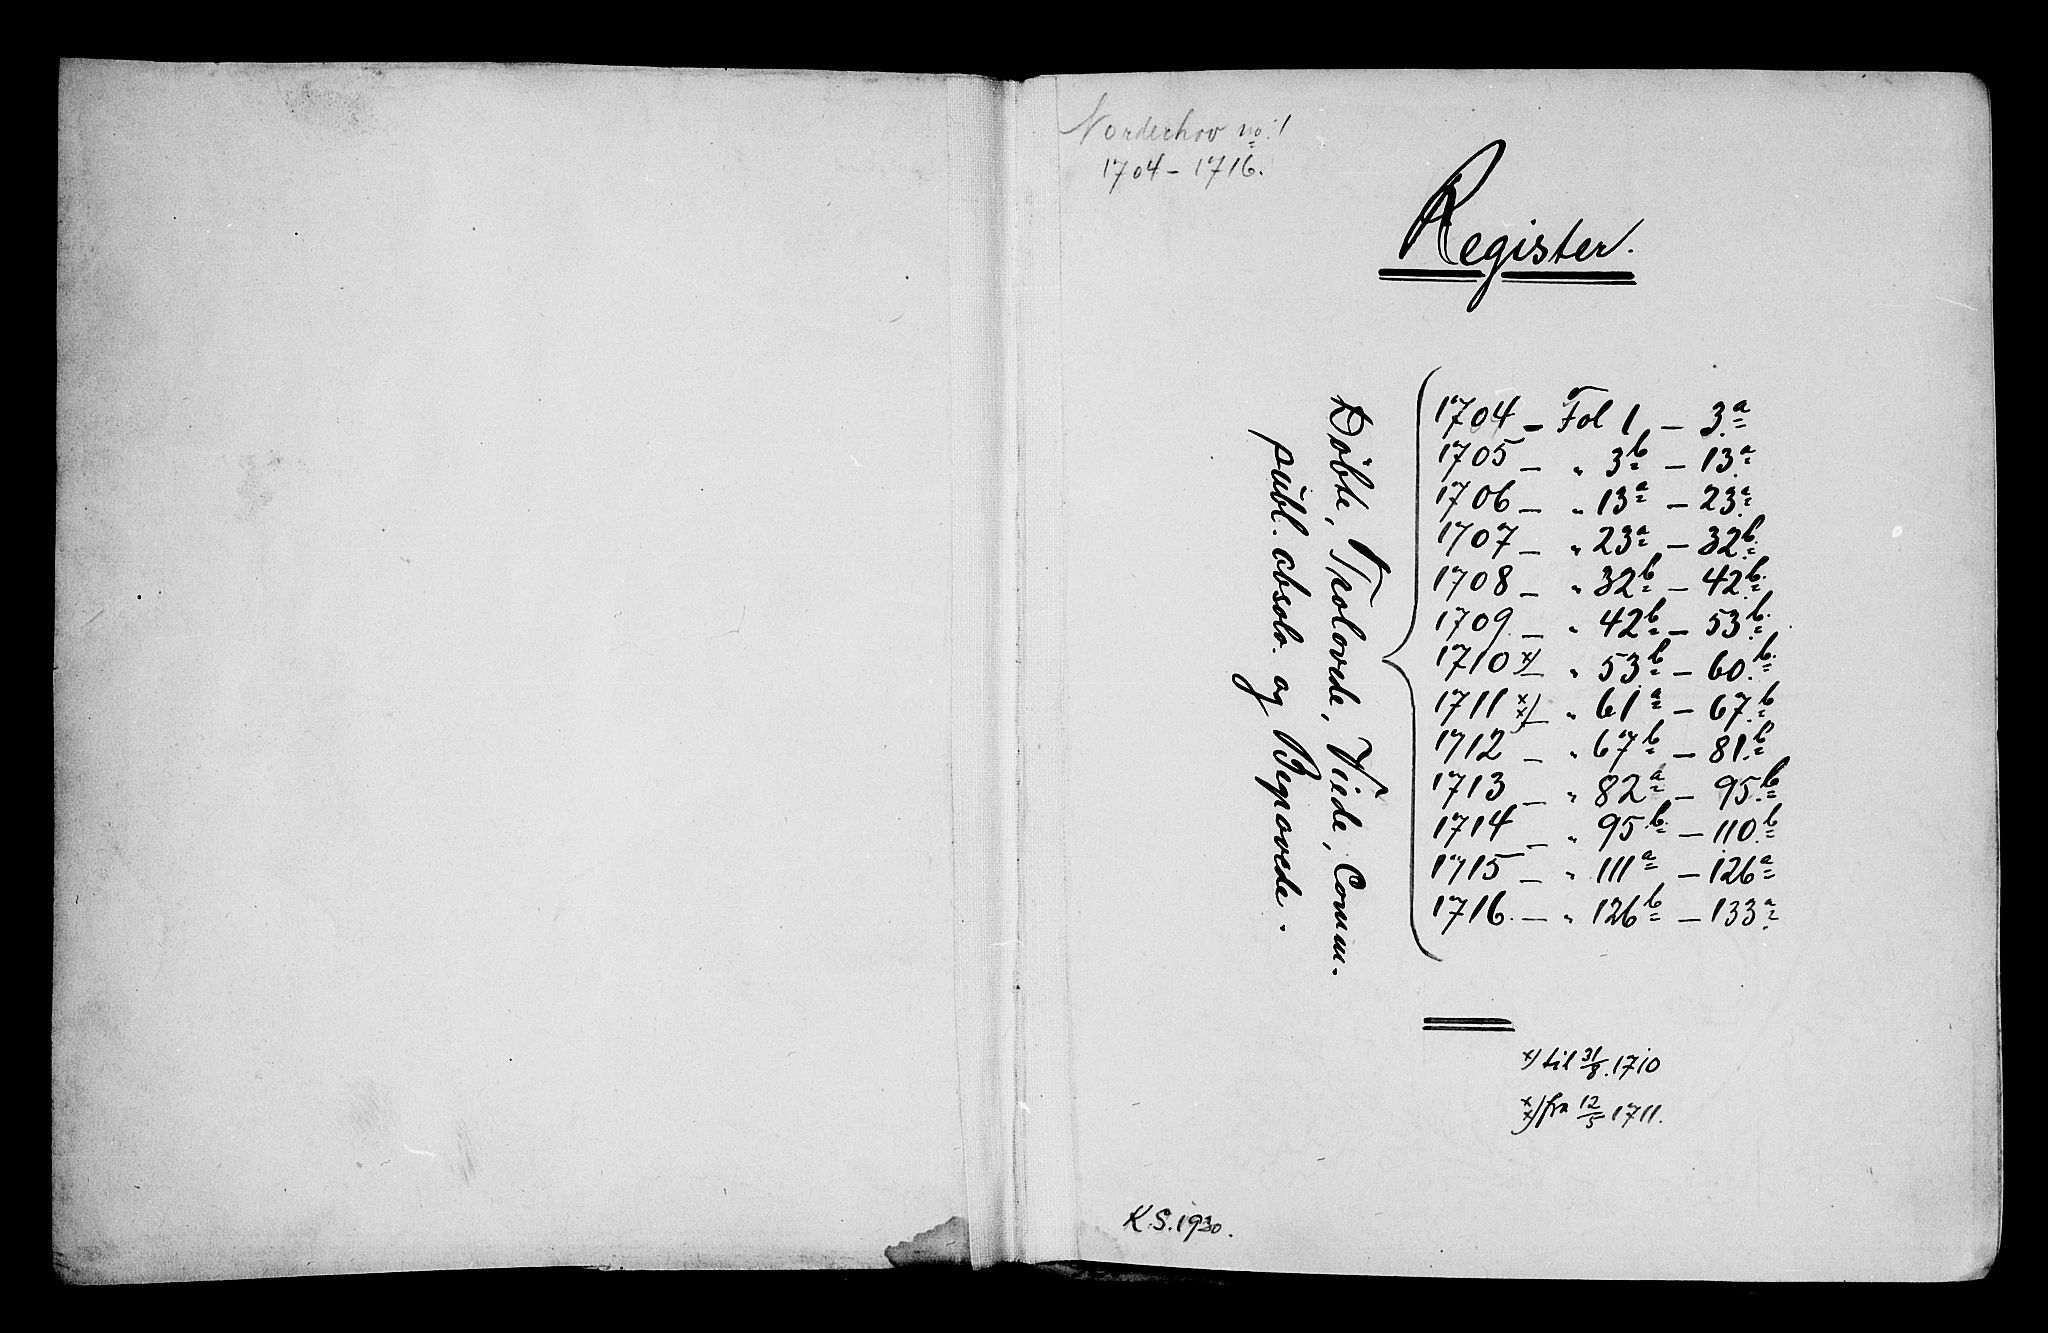 Norderhov no. 1
1704 – 1716.
Register.
Döbte, Trolovede, Viede, Comm.
publ. absolv. og Begravede.
1704 – Fol 1 – 3.a
1705 – " 3b – 13.a
1706 – " 13a – 23.a
1707 – " 23a – 32b.
1708 – " 32b – 42b.
1709 – " 42b – 53b.
1710 x) – " 53b – 60.b.
1711 xx) – " 61a – 67.b
1712 – " 67b – 81.b
1713 – " 82a – 95.b
1714 – " 95b. – 110.b
1715 – " 111a – 126a
1716. – " 126b – 133a.
x) til 31/8. 1710
xx) fra 12/5 1711.
K.S. 1930.